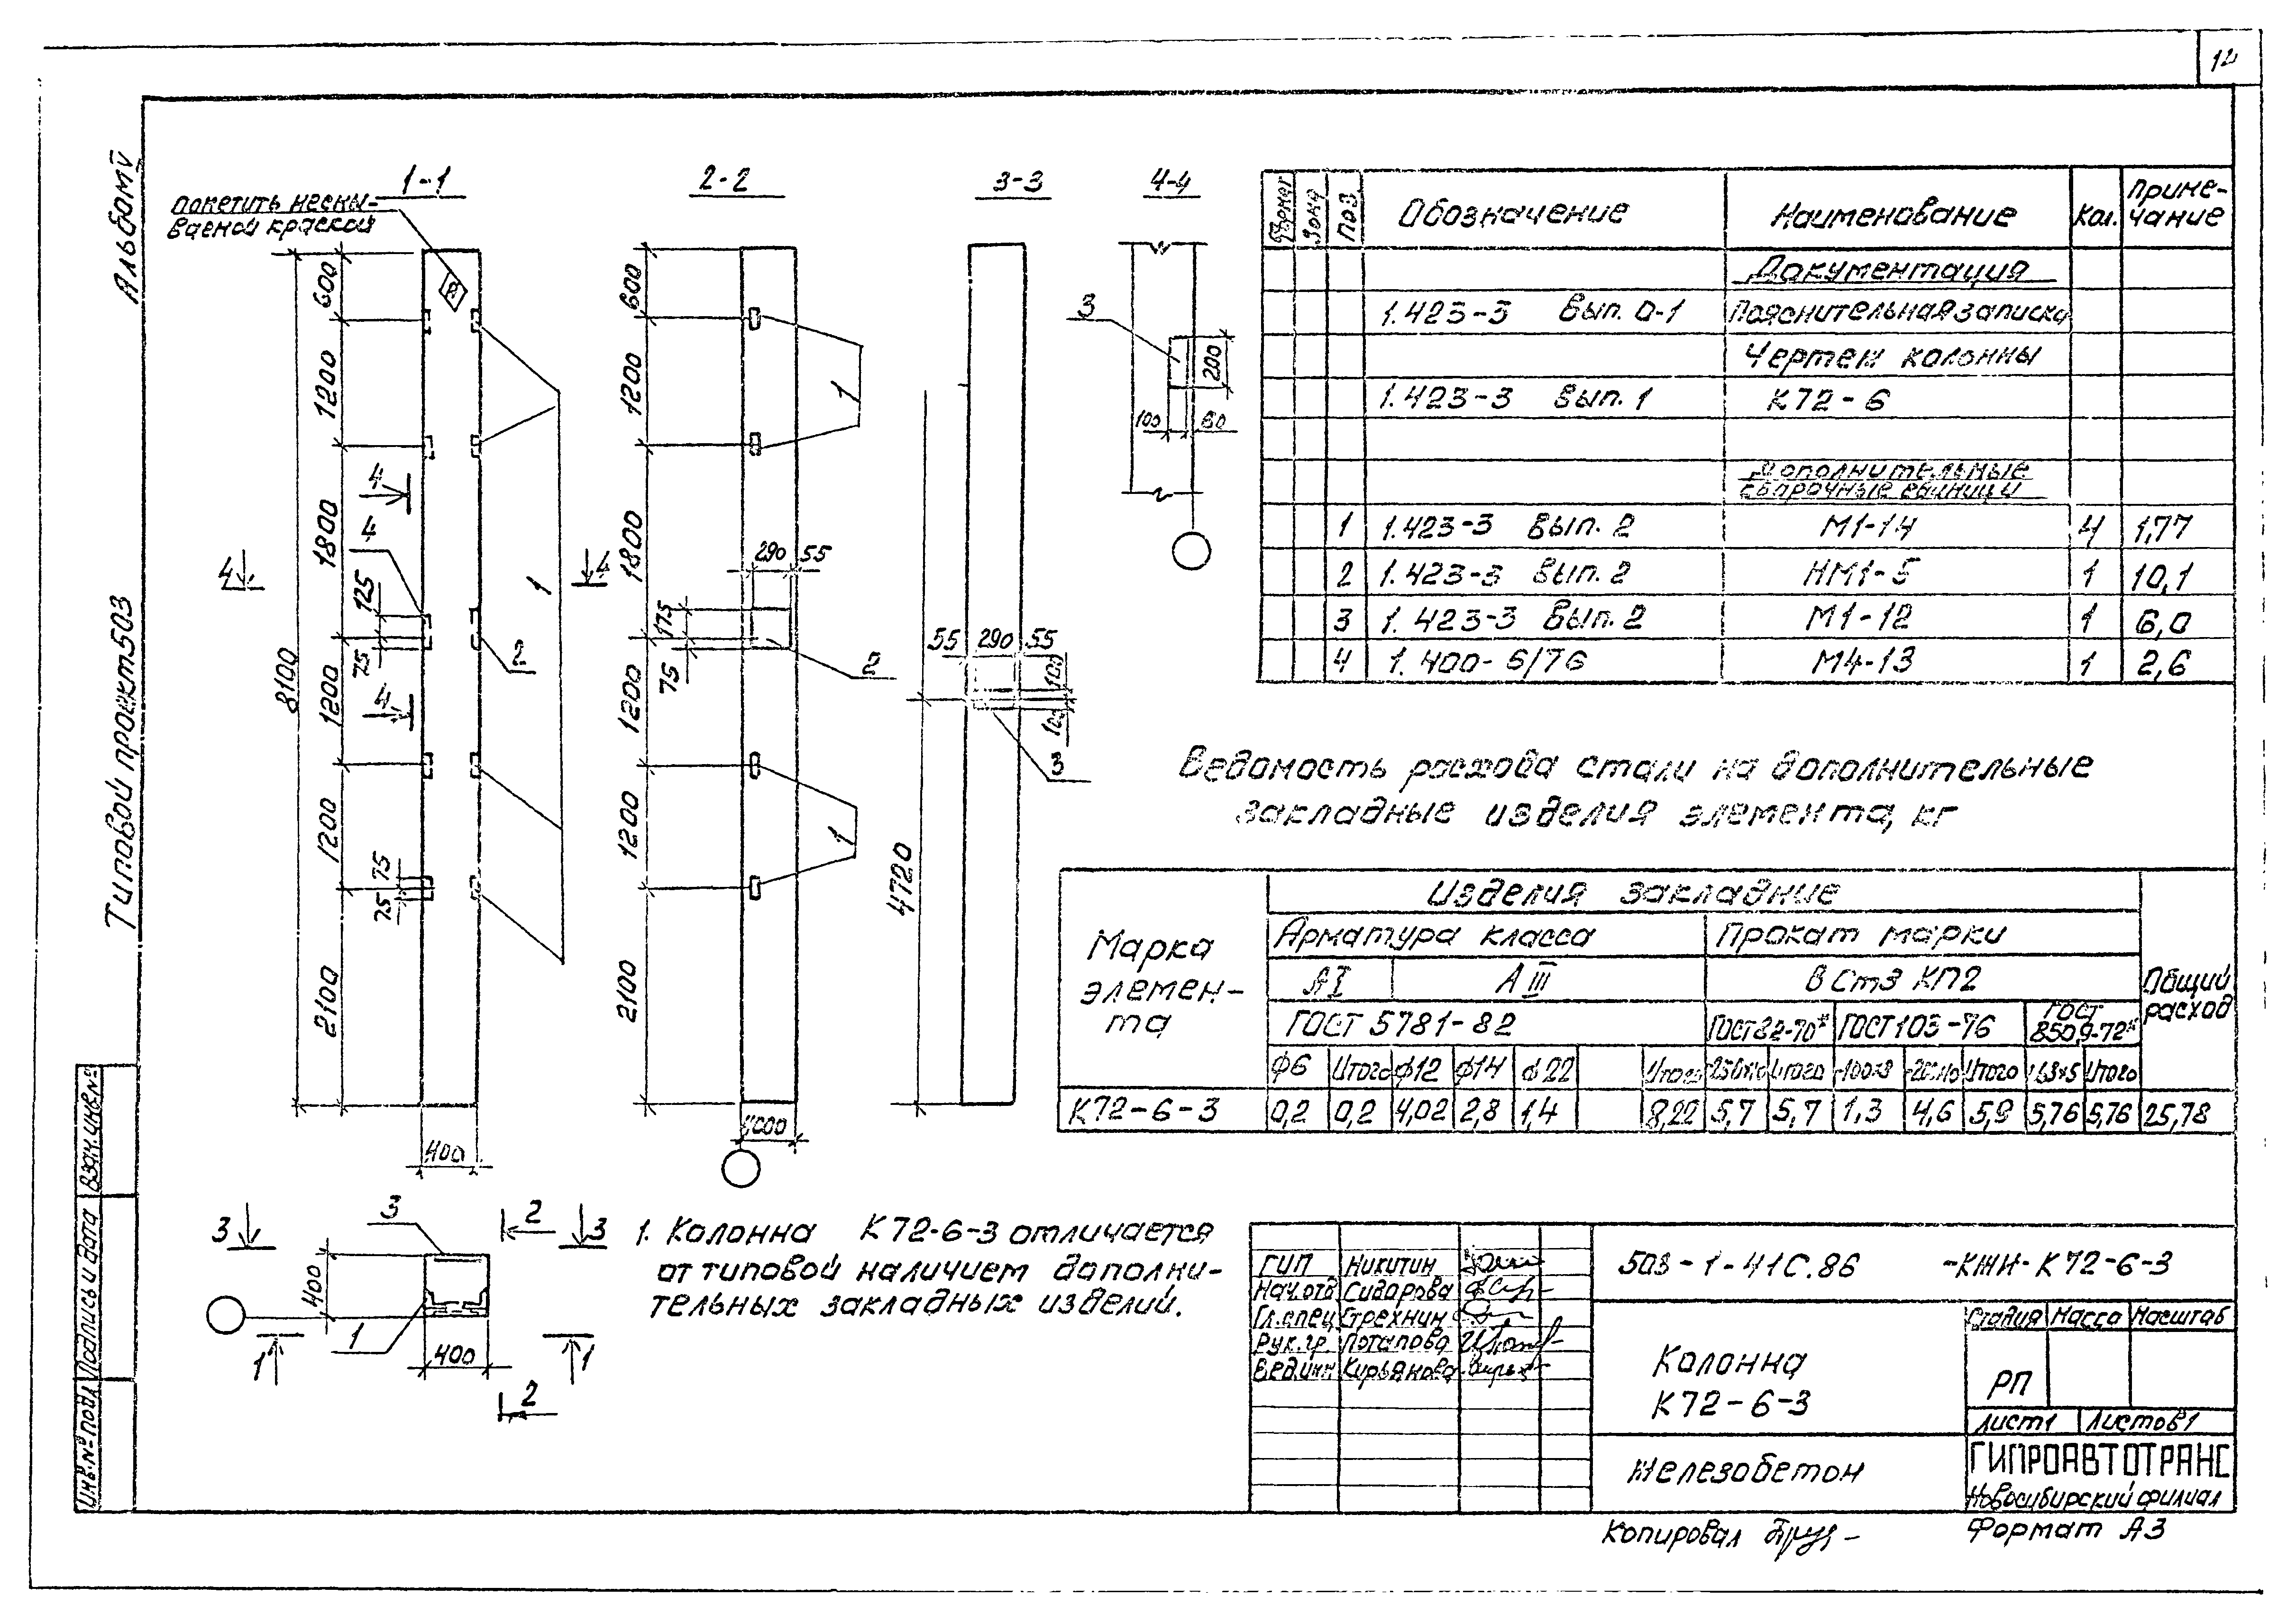 12
Альбом V
Типовой проект 503
Инв.№ подл.
Подпись и дата
Взам.инв.№
1-1
2-2
3-3
4-4
пометить несмы-
ваемой краской
600
1200
1800
1200
1200
2100
8100
125
75
75
75
400
4
4
4
4
4
1
2
600
1200
1800
1200
1200
2100
290
55
175
75
1
2
1
4000
55
290
55
100
100
3
4720
3
200
100
60
3
3
3
2
400
1
400
1
1
2
1. Колонна К72-6-3 отличается
от типовой наличием дополни-
тельных закладных изделий.
Формат
Зона
Поз
Обозначение
Наименование
Кол.
Приме-
чание
Документация
1.423-3 Вып. 0-1 Пояснительная записка
Чертеж колонны
1.423-3 Вып. 1 К72-6
Дополнительные
сборочные единицы
1 1.423-3 Вып. 2 М1-14 4 1,77
2 1.423-3 Вып. 2 НМ1-5 1 10,1
3 1.423-3 Вып. 2 М1-12 1 6,0
4 1.400-6/76 М4-13 1 2,6
Ведомость расхода стали на дополнительные
закладные изделия элемента, кг
Марка
элемен-
та
Изделия закладные
Арматура класса
Прокат марки
АI
АIII
ВСт3 КП2
Общий
расход
ГОСТ 5781-82
ГОСТ 82-70*
ГОСТ 103-76
ГОСТ
8509-72*
ф6 Итого ф12 ф14 ф22 Итого Итого -100x8 Итого L63x5 Итого
К72-6-3 0,2 0,2 4,02 2,8 1,4 8,22 5,7 5,7 1,3 4,6 5,9 5,76 5,76 25,78
ГИП Никитин
Нач.отд Сидорова
Гл.спец Стрехнин
Рук.гр. Потапова
Вед.инж Кирьянова
503-1-41С.86 -КЖИ-К72-6-3
Колонна
К72-6-3
Стадия Масса Масштаб
РП
Лист 1 Листов 1
Железобетон
ГИПРОАВТОТРАНС
Новосибирский филиал
Копировал
Формат А3